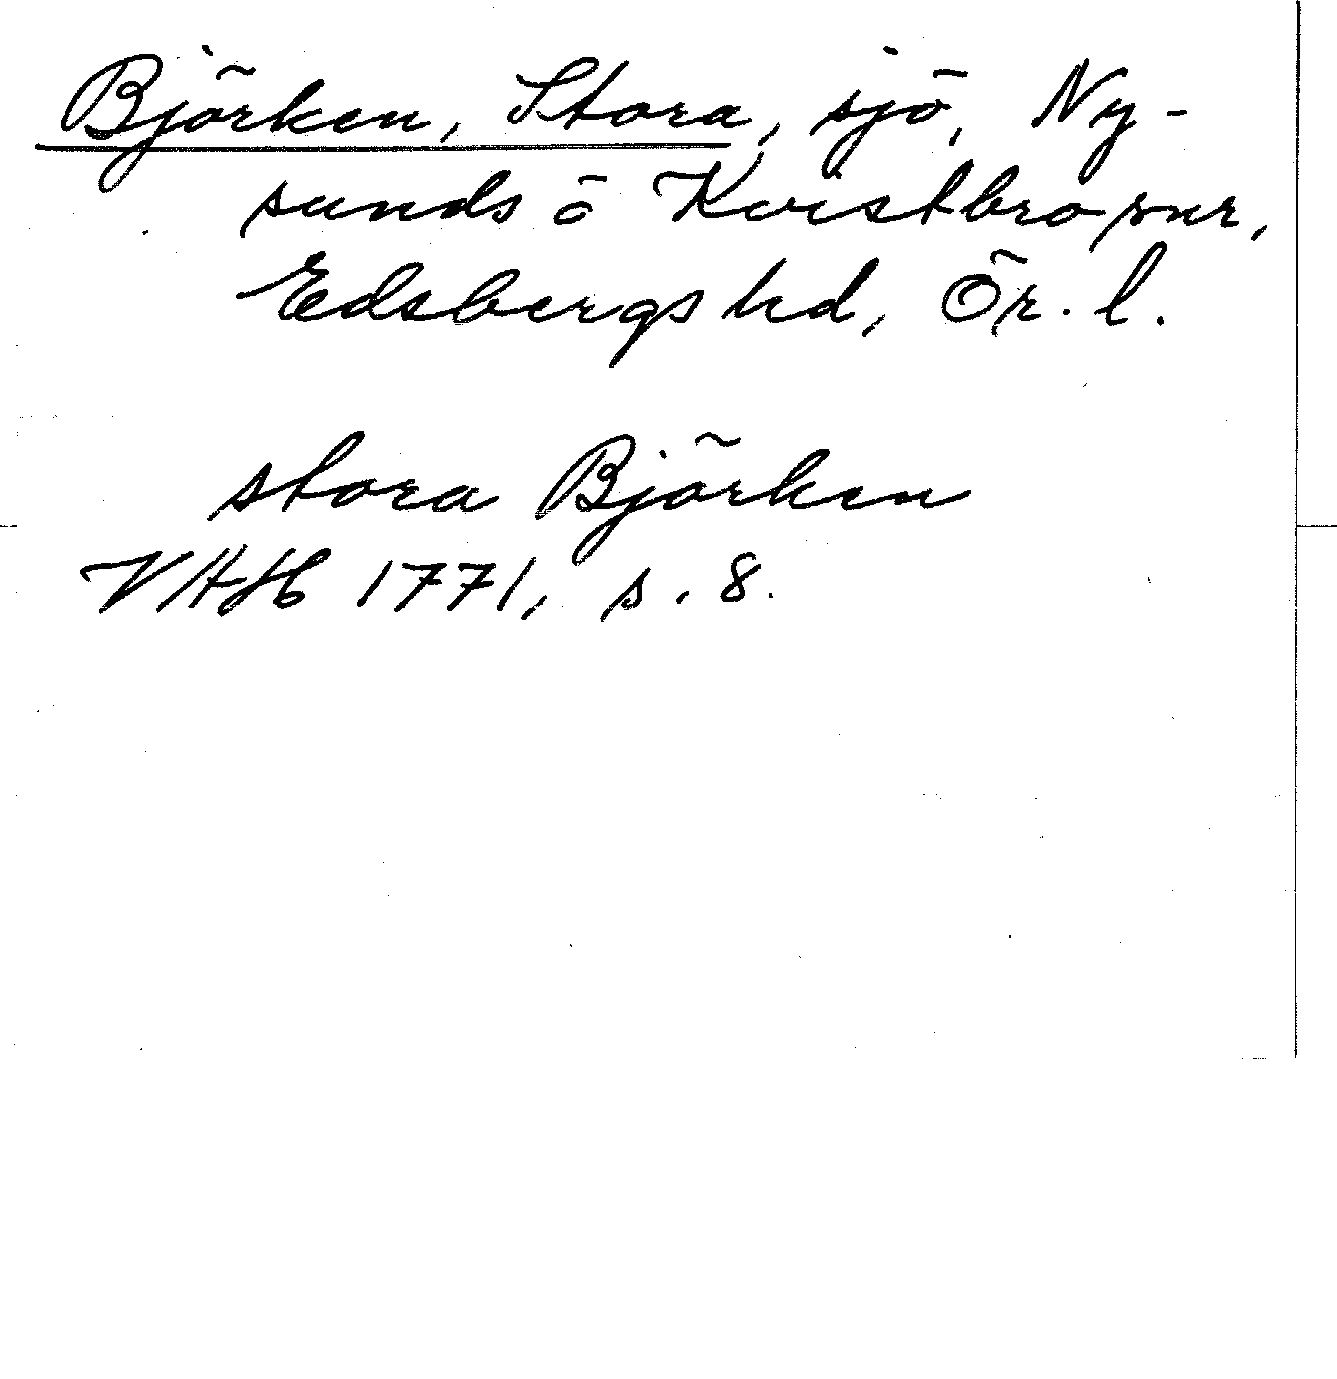 Björken, Stora, sjö, Ny-
sunds o Kvistbro snr,
Edsbergs hd, Ör. l.
stora Björken
VAH 1771, s. 8.